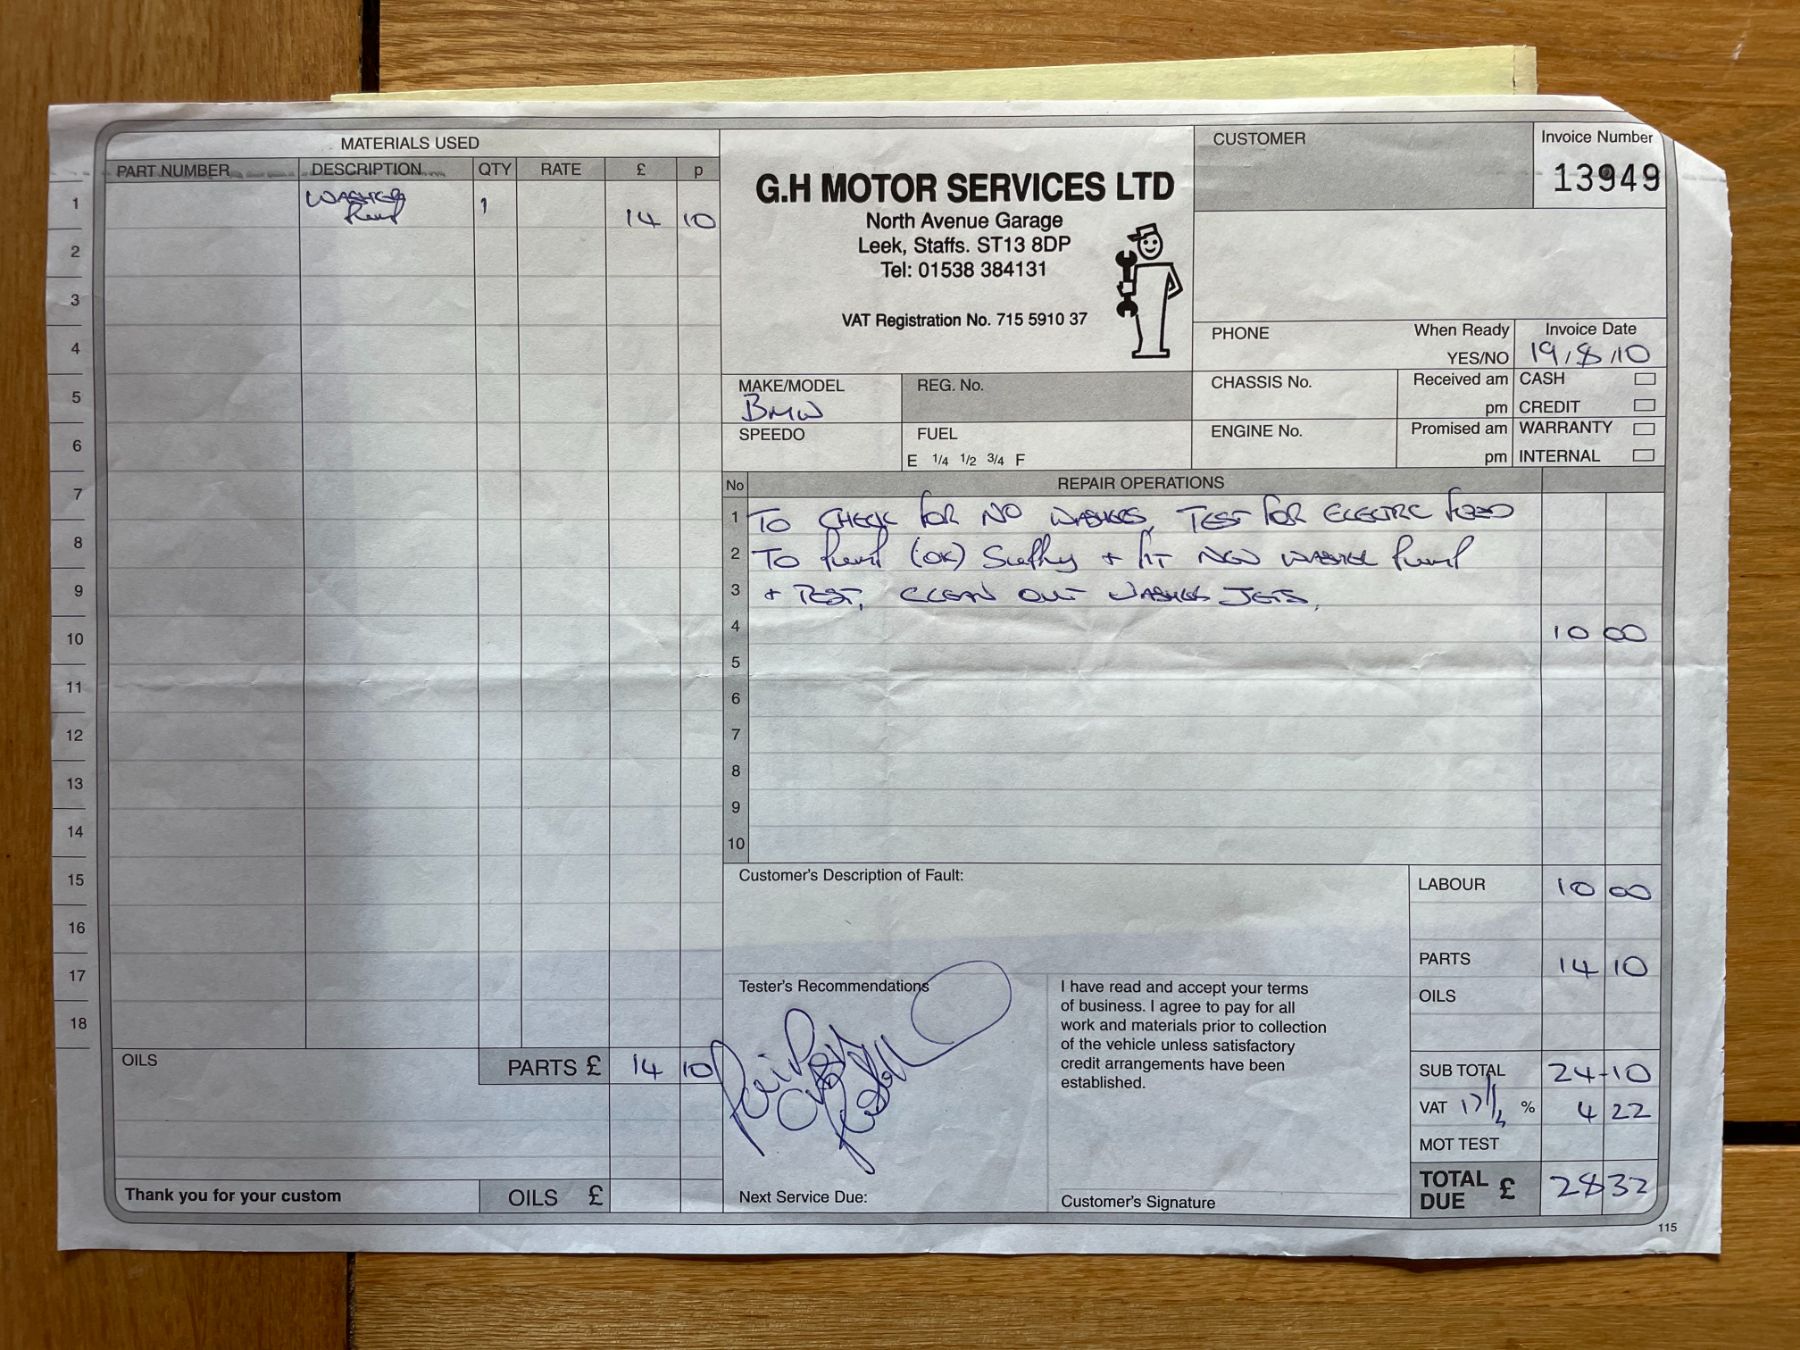 MATERIALS USED
PART NUMBER DESCRIPTION QTY RATE £ p
1 WASHER 1
Pump 14 10
2
3
4
5
6
7
8
9
10
11
12
13
14
15
16
17
18
OILS PARTS £ 14 10
Thank you for your custom OILS £
G.H MOTOR SERVICES LTD
North Avenue Garage
Leek, Staffs. ST13 8DP
Tel: 01538 384131
VAT Registration No. 715 5910 37
CUSTOMER
Invoice Number
13949
PHONE When Ready Invoice Date
YES/NO 19/8/10
MAKE/MODEL REG. No. CHASSIS No. Received am CASH
BMW pm CREDIT
SPEEDO FUEL ENGINE No. Promised am WARRANTY
E 1/4 1/2 3/4 F pm INTERNAL
No REPAIR OPERATIONS
1 TO CHECK FOR NO WASHERS, TEST FOR ELECTRIC FEED
2 TO Pump (OK) Supply + FIT NEW WASHER Pump
3 + TEST, CLEAN OUT WASHER JETS,
4 10 00
5
6
7
8
9
10
Customer's Description of Fault:
LABOUR 10 00
PARTS 14 10
OILS
SUB TOTAL 24-10
VAT 17 1/2 % 4 22
MOT TEST
TOTAL DUE £ 28 32
Tester's Recommendations
Paid
Next Service Due:
I have read and accept your terms
of business. I agree to pay for all
work and materials prior to collection
of the vehicle unless satisfactory
credit arrangements have been
established.
Customer's Signature
115